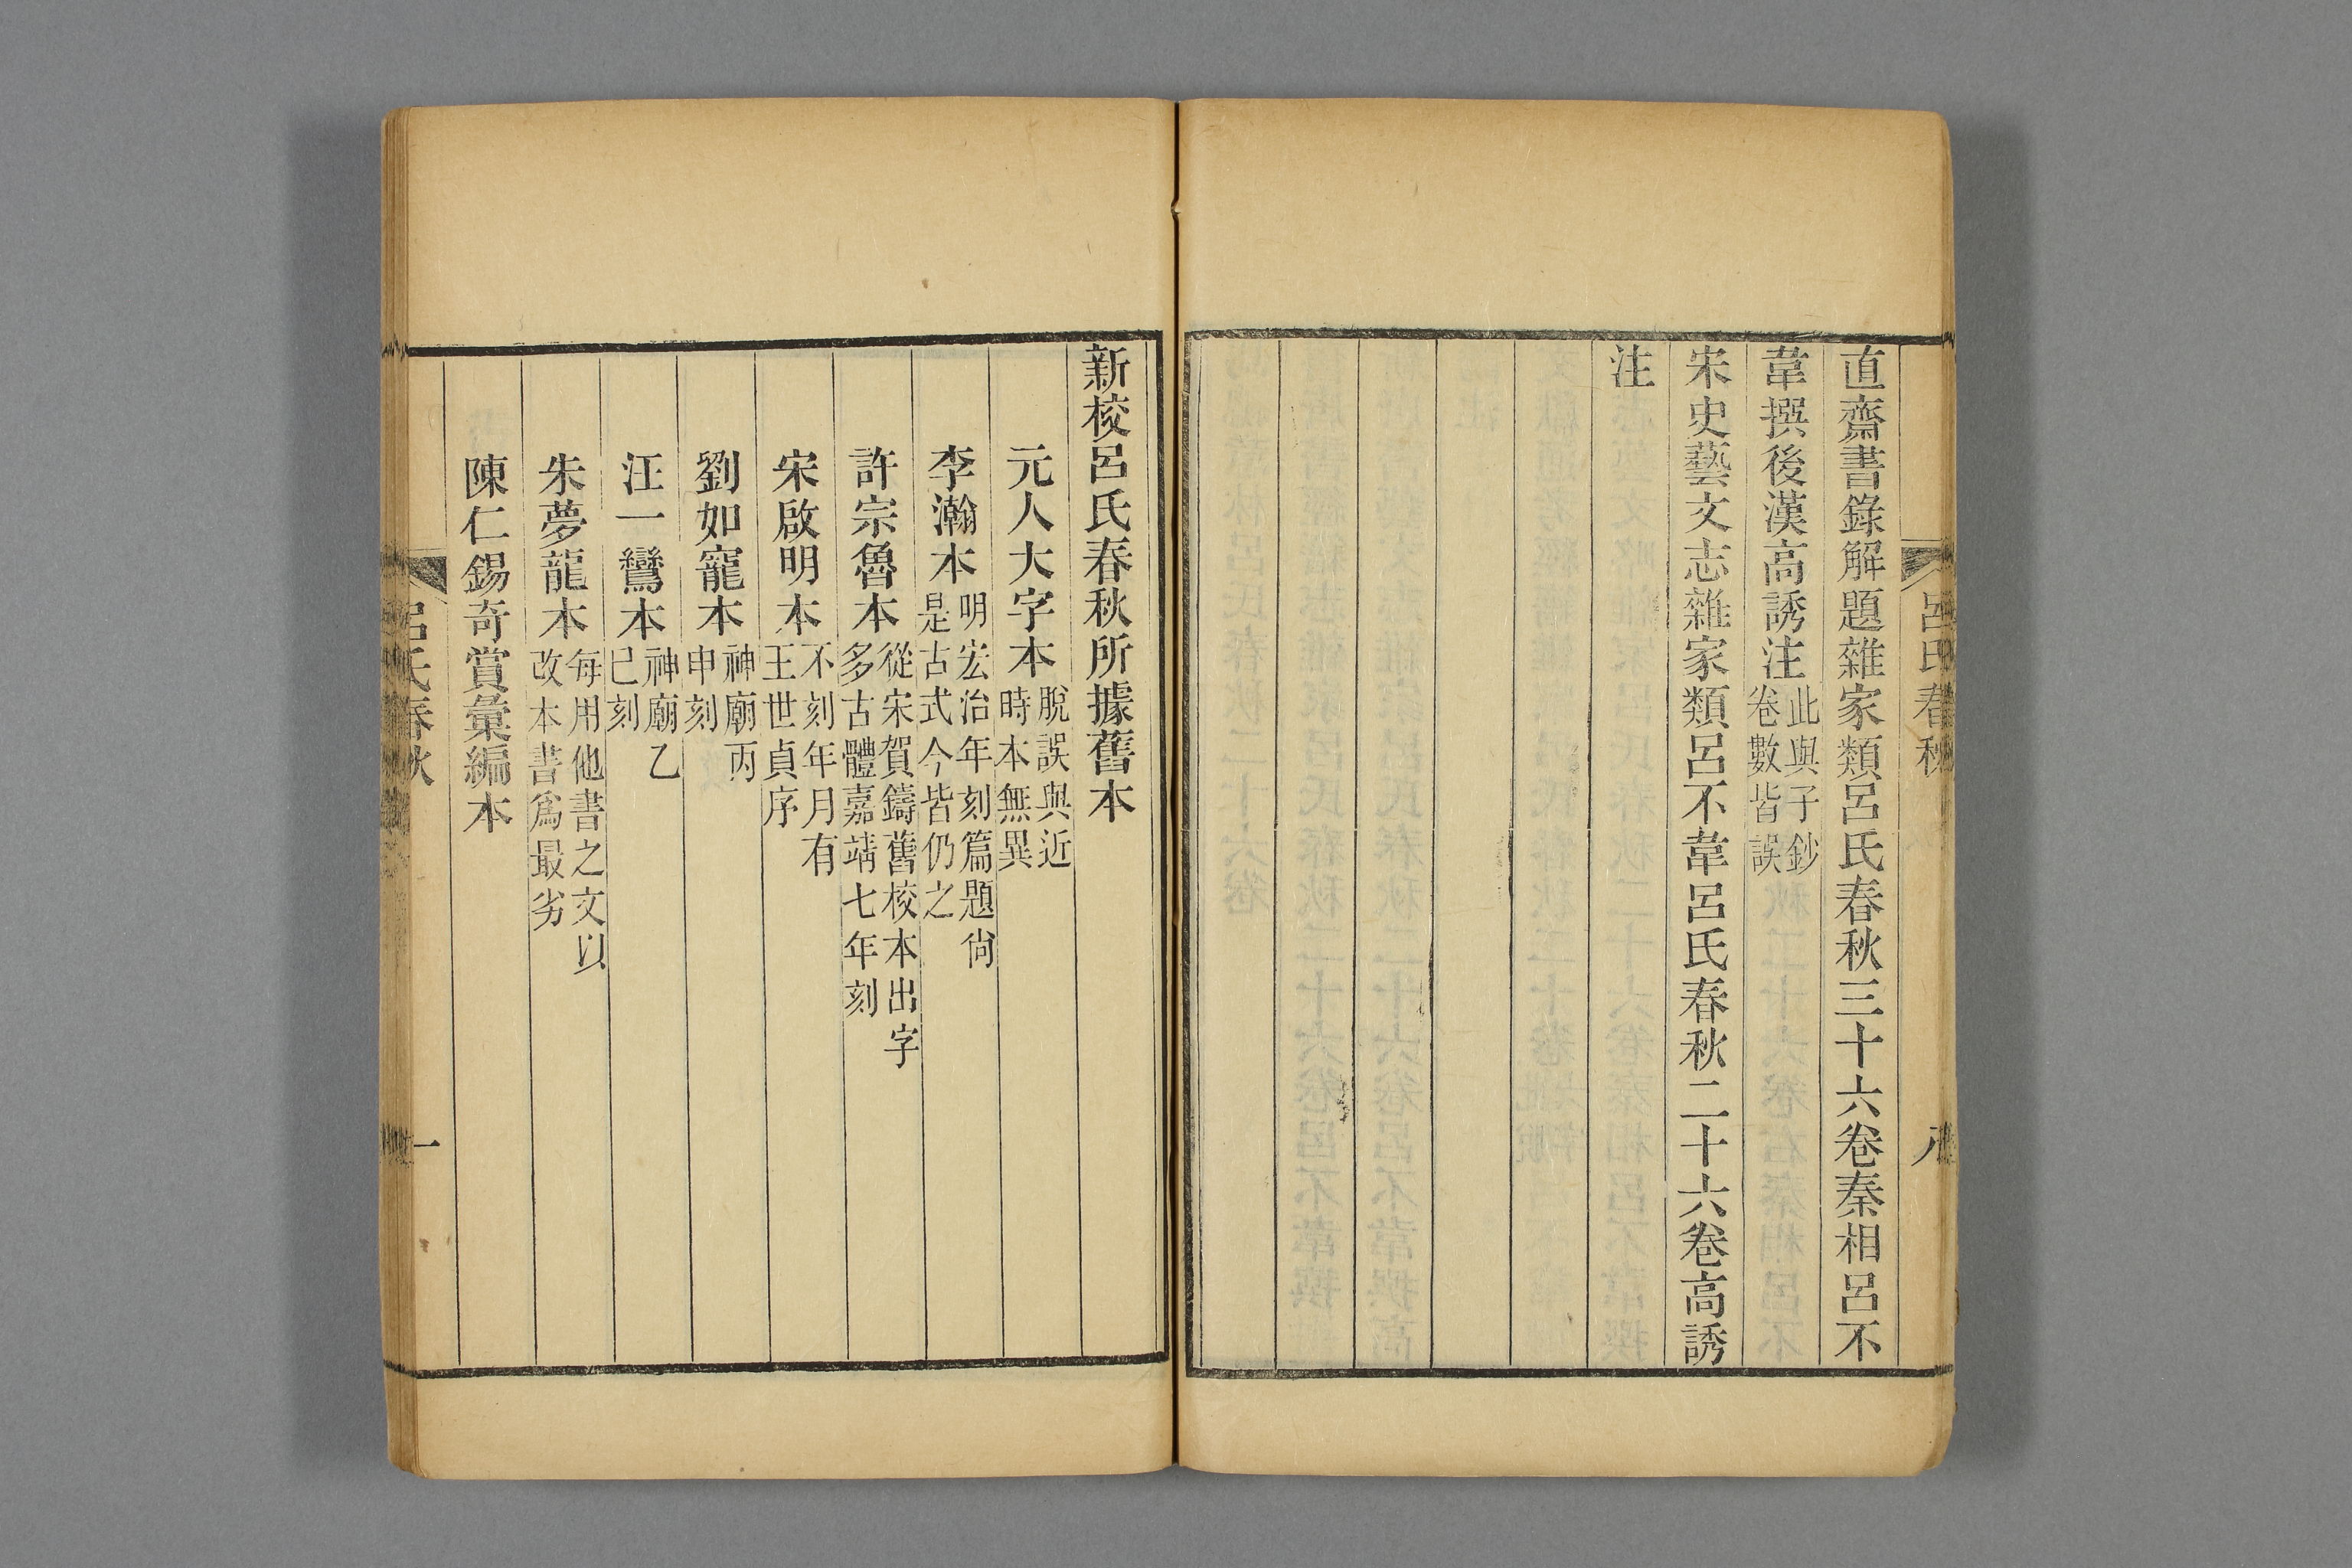 呂氏春秋
八
直齋書錄解題雜家類呂氏春秋三十六卷秦相呂不
韋撰後漢高誘注此與子鈔
卷數皆誤
宋史藝文志雜家類呂不韋呂氏春秋二十六卷高誘
注
新校呂氏春秋所據舊本
元人大字本脫誤與近
時本無異
李瀚本明宏治年刻篇題尙
是古式今皆仍之
許宗魯本從宋賀鑄舊校本出字
多古體嘉靖七年刻
宋啟明本不刻年月有
王世貞序
劉如寵本神廟丙
申刻
汪一鸞本神廟乙
巳刻
朱夢龍本每用他書之文以
改本書爲最劣
陳仁錫奇賞彙編本
呂氏春秋
一